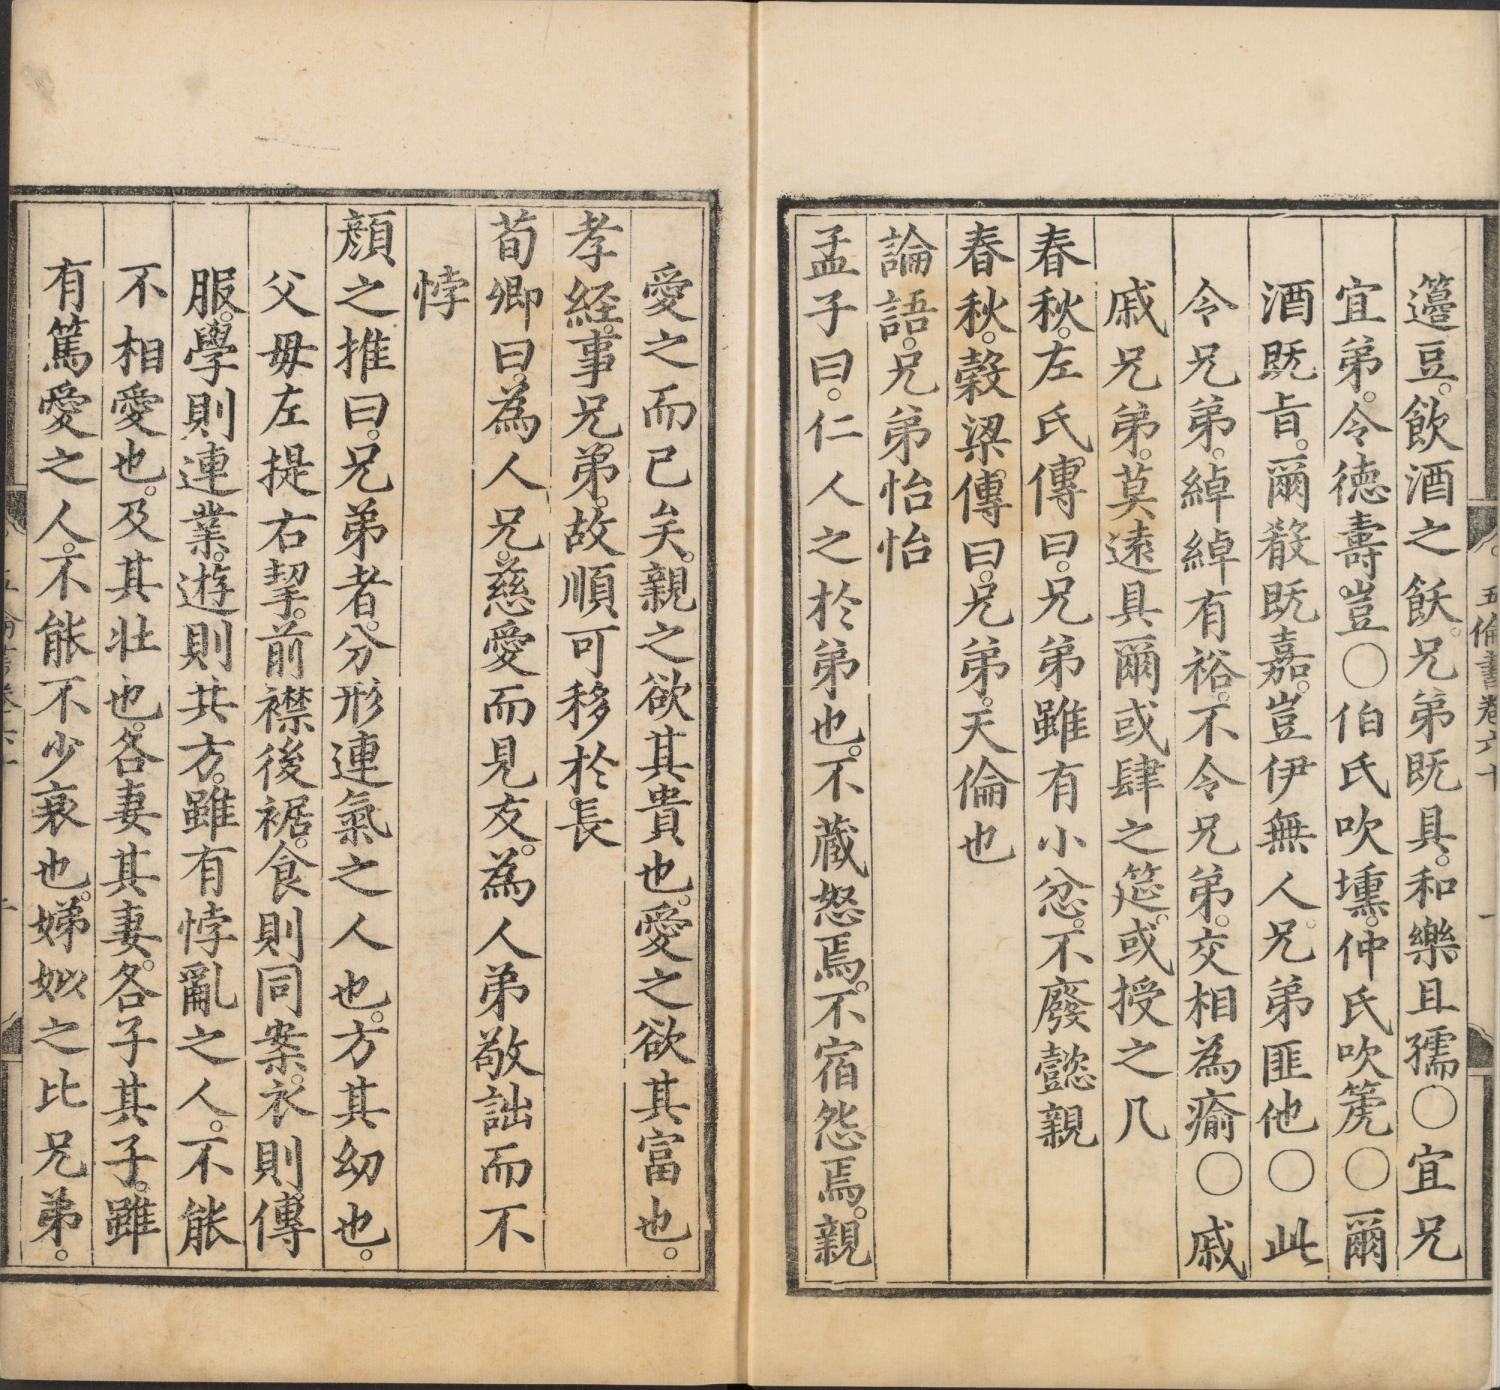 五倫書卷六十 一
籩豆。飲酒之飫。兄弟既具。和樂且孺〇宜兄
宜弟。令德壽豈〇伯氏吹壎。仲氏吹箎〇爾
酒既旨。爾殽既嘉。豈伊無人。兄弟匪他〇此
令兄弟。綽綽有裕。不令兄弟。交相為瘉〇戚
戚兄弟。莫遠具爾或肆之筵。或授之几
春秋。左氏傳曰。兄弟雖有小忿。不廢懿親
春秋。穀梁傳曰。兄弟。天倫也
論語。兄弟怡怡
孟子曰。仁人之於弟也。不蔵怒焉。不宿怨焉。親
愛之而已矣。親之欲其貴也。愛之欲其富也。
孝經。事兄弟。故順可移於長
荀卿曰。為人兄。慈愛而見友。為人弟敬詘而不
悖
顏之推曰。兄弟者。分形連氣之人也。方其幼也。
父母左提右挈。前襟後裾。食則同案。衣則傳
服。學則連業。遊則共方。雖有悖亂之人。不能
不相愛也。及其壯也。各妻其妻。各子其子。雖
有篤愛之人。不能不少衰也。娣姒之比兄弟。